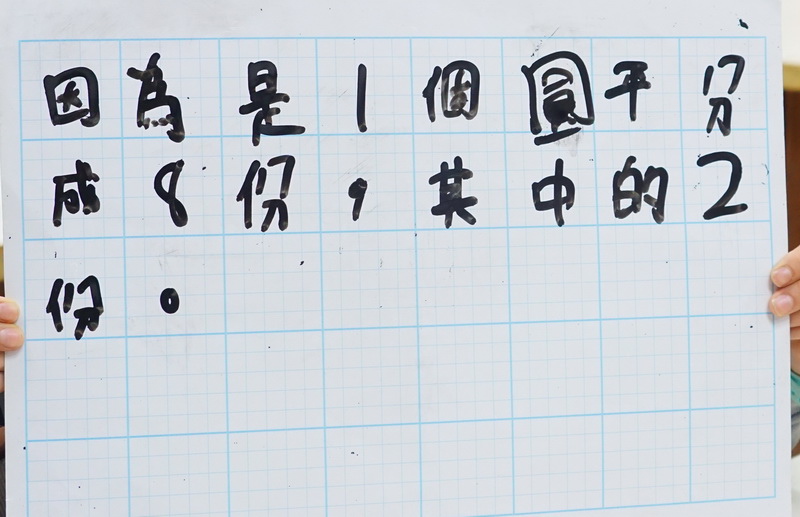 因為是1個圓平分
成8份，其中的2
份。